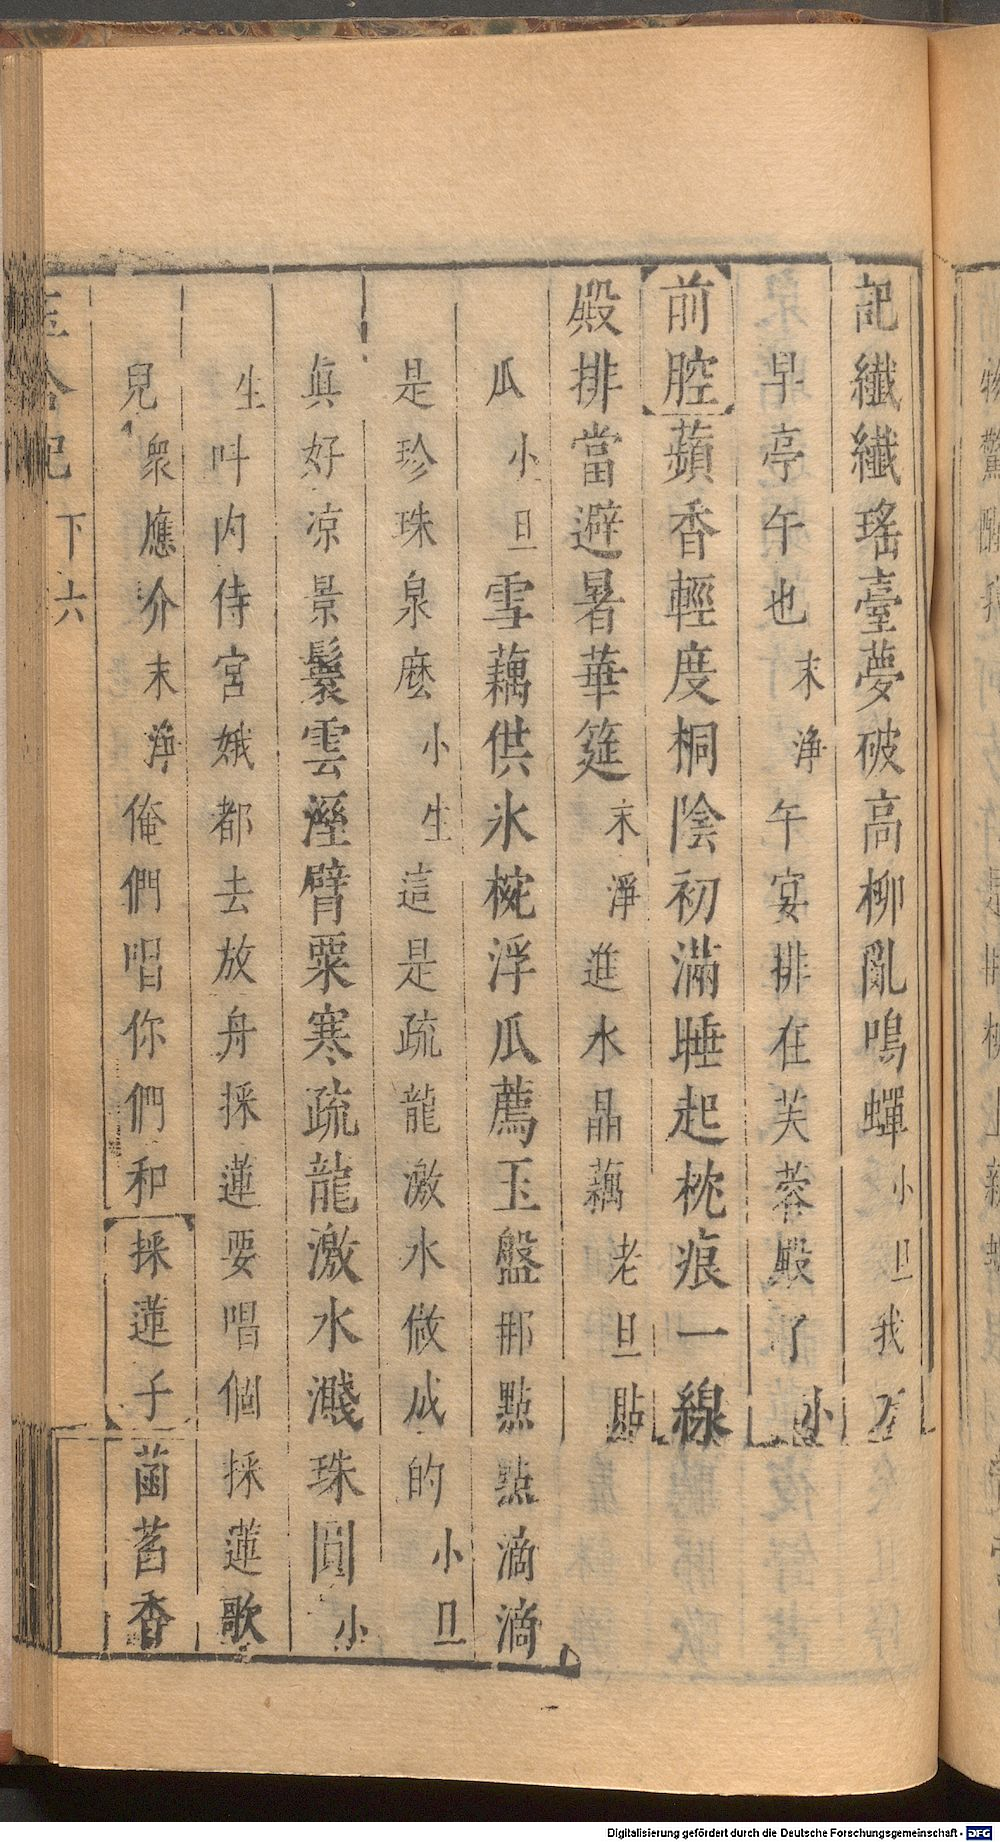 記纖纖瑤臺夢破高柳亂鳴蟬小旦我
早亭午也末淨午宴排在芙蓉殿了小
前腔蘋香輕度桐陰初滿睡起枕痕一線
殿排當避暑華筵末淨進水晶藕老旦貼
瓜小旦雪藕供氷椀浮瓜薦玉盤那點點滴滴
是珍珠泉麽小生這是疏龍激水做成的小旦
眞好凉景鬟雲溼臂粟寒疏龍激水濺珠圓小
生呌内侍宮娥都去放舟採蓮要唱個採蓮歌
兒衆應介末淨俺們唱你們和採蓮子菡萏香
記
下六
Digitalisierung gefördert durch die Deutsche Forschungsgemeinschaft - DFG